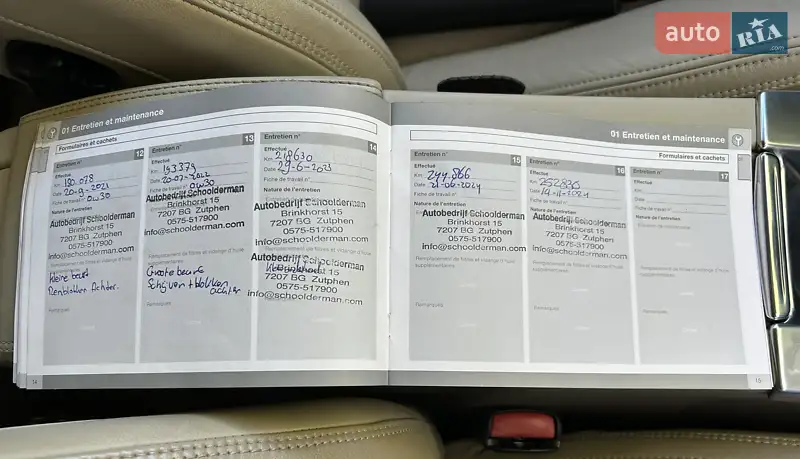 auto RIA
.com
01 Entretien et maintenance
Formulaires et cachets
Entretien n° 12
Effectué
Km 180.078
Date 20-9-2021
Fiche de travail n° 0W30
Nature de l'entretien
Autobedrijf Schoolderman
Brinkhorst 15
7207 BG Zutphen
0575-517900
info@schoolderman.com
Remplacement de filtres et vidange d'huile supplémentaires
Kleine beurt
Remblokken Achter.
Remarques
Entretien n° 13
Effectué
Km 193379
Date 20-07-2022
Fiche de travail n° 0W30
Autobedrijf Schoolderman
Brinkhorst 15
7207 BG Zutphen
0575-517900
info@schoolderman.com
Remplacement de filtres et vidange d'huile supplémentaires
Groote beurt
Schijven + blokken
achter
Remarques
Entretien n° 14
Effectué
Km 218630
Date 29-6-2023
Fiche de travail n°
Nature de l'entretien
Autobedrijf Schoolderman
Brinkhorst 15
7207 BG Zutphen
0575-517900
info@schoolderman.com
Autobedrijf Schoolderman
Brinkhorst 15
7207 BG Zutphen
0575-517900
info@schoolderman.com
14
01 Entretien et maintenance
Formulaires et cachets
Entretien n° 15
Effectué
Km 244.866
Date 21-06-2024
Fiche de travail n°
Nature de l'entretien
Autobedrijf Schoolderman
Brinkhorst 15
7207 BG Zutphen
0575-517900
info@schoolderman.com
Remplacement de filtres et vidange d'huile supplémentaires
Remarques
Entretien n° 16
Effectué
Km
Date 14-11-2024
Fiche de travail n°
Nature de l'entretien
Autobedrijf Schoolderman
Brinkhorst 15
7207 BG Zutphen
0575-517900
info@schoolderman.com
Remplacement de filtres et vidange d'huile supplémentaires
Remarques
Entretien n° 17
Effectué
Km
Date
Fiche de travail n°
Nature de l'entretien
Remplacement de filtres et vidange d'huile supplémentaires
Remarques
15